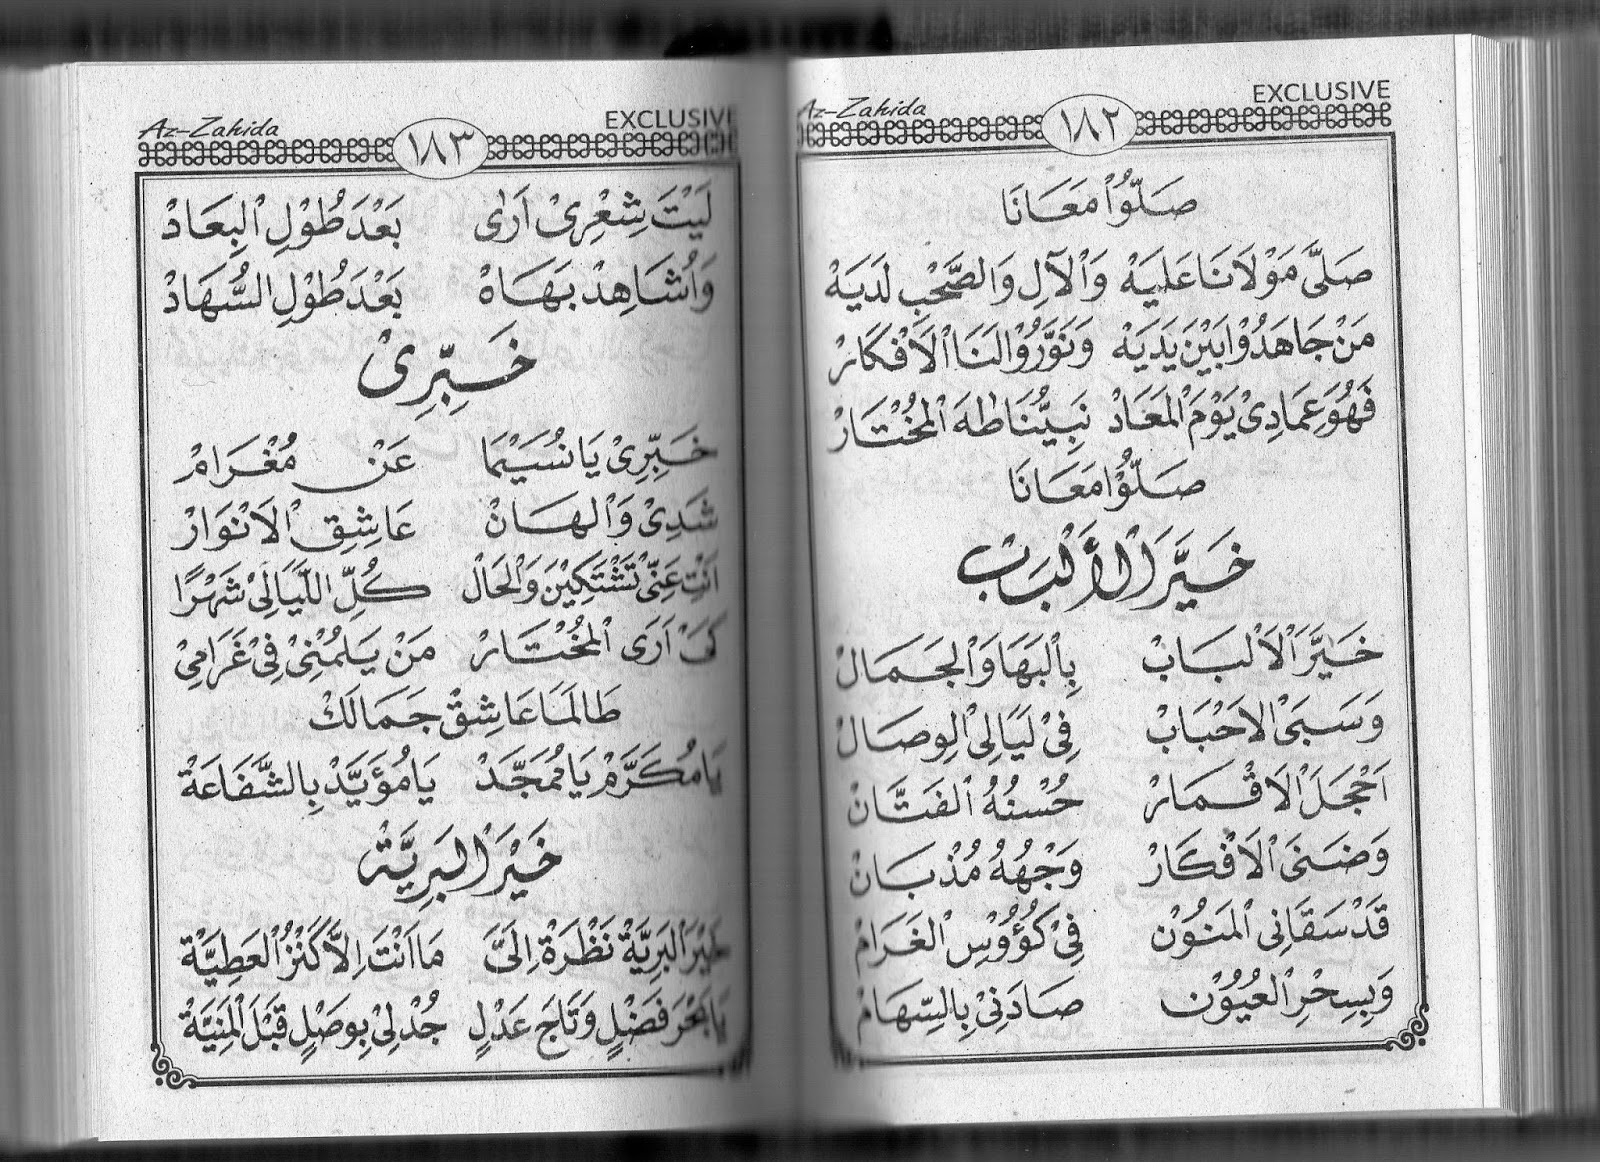 Az-Zahida ١٨٢ EXCLUSIVE
صَلُّوْا مَعَانَا
صَلَّى مَوْلَانَا عَلَيْهْ وَالْآلِ وَالصَّحْبِ لَدَيْهْ
مَنْ جَاهَدُوْا بَيْنَ يَدَيْهْ وَنَوَّرُوْا لَنَا الْاَفْكَارْ
فَهُوَ عِمَادِيْ يَوْمَ الْمَعَادْ نَبِيُّنَا طٰهَ الْمُخْتَارْ
صَلُّوْا مَعَانَا
خَيَّرَ الْأَلْبَابْ
خَيَّرَ الْاَلْبَابْ بِالْبَهَا وَالْجَمَالْ
وَسَبَى الْاَحْبَابْ فِيْ لَيَالِى الْوِصَالْ
اَخْجَلَ الْاَقْمَارْ حُسْنُهُ الْفَتَّانْ
وَضَنَى الْاَفْكَارْ وَجْهُهُ مُذْبَانْ
قَدْ سَقَانِى الْمَنُوْن فِيْ كُؤُوْسِ الْغَرَامْ
وَبِسِحْرِ الْعُيُوْنْ صَادَنِيْ بِالسِّهَامْ
Az-Zahida ١٨٣ EXCLUSIVE
لَيْتَ شِعْرِيْ اَرٰى بَعْدَ طُوْلِ الْبِعَادْ
وَاُشَاهِدْ بَهَاهْ بَعْدَ طُوْلِ السُّهَادْ
خَبِّرِيْ
خَبِّرِيْ يَا نُسَيْمَا عَنْ مُغْرَامْ
شَدِيْ وَالْهَانْ عَاشِقِ الْاَنْوَارْ
اَنْتِ عَنِّيْ تَشْتَكِيْنَ وَالْحَالْ كُلِّ اللَّيَالِيْ شَهْرًا
كَىْ اَرَى الْمُخْتَارْ مَنْ يَلُمْنِيْ فِيْ غَرَامِيْ
طَالَمَا عَاشِقْ جَمَالَكْ
يَا مُكَرَّمْ يَا مُمَجَّدْ يَا مُؤَيَّدْ بِالشَّفَاعَةْ
خَيْرَ الْبَرِيَّةْ
خَيْرَ الْبَرِيَّةْ نَظْرَةْ اِلَيَّ مَا اَنْتَ اِلَّا كَنْزُ الْعَطِيَّةْ
يَا بَحْرَ فَضْلٍ وَتَاجَ عَدْلٍ جُدْ لِيْ بِوَصْلٍ قَبْلَ الْمَنِيَّةْ